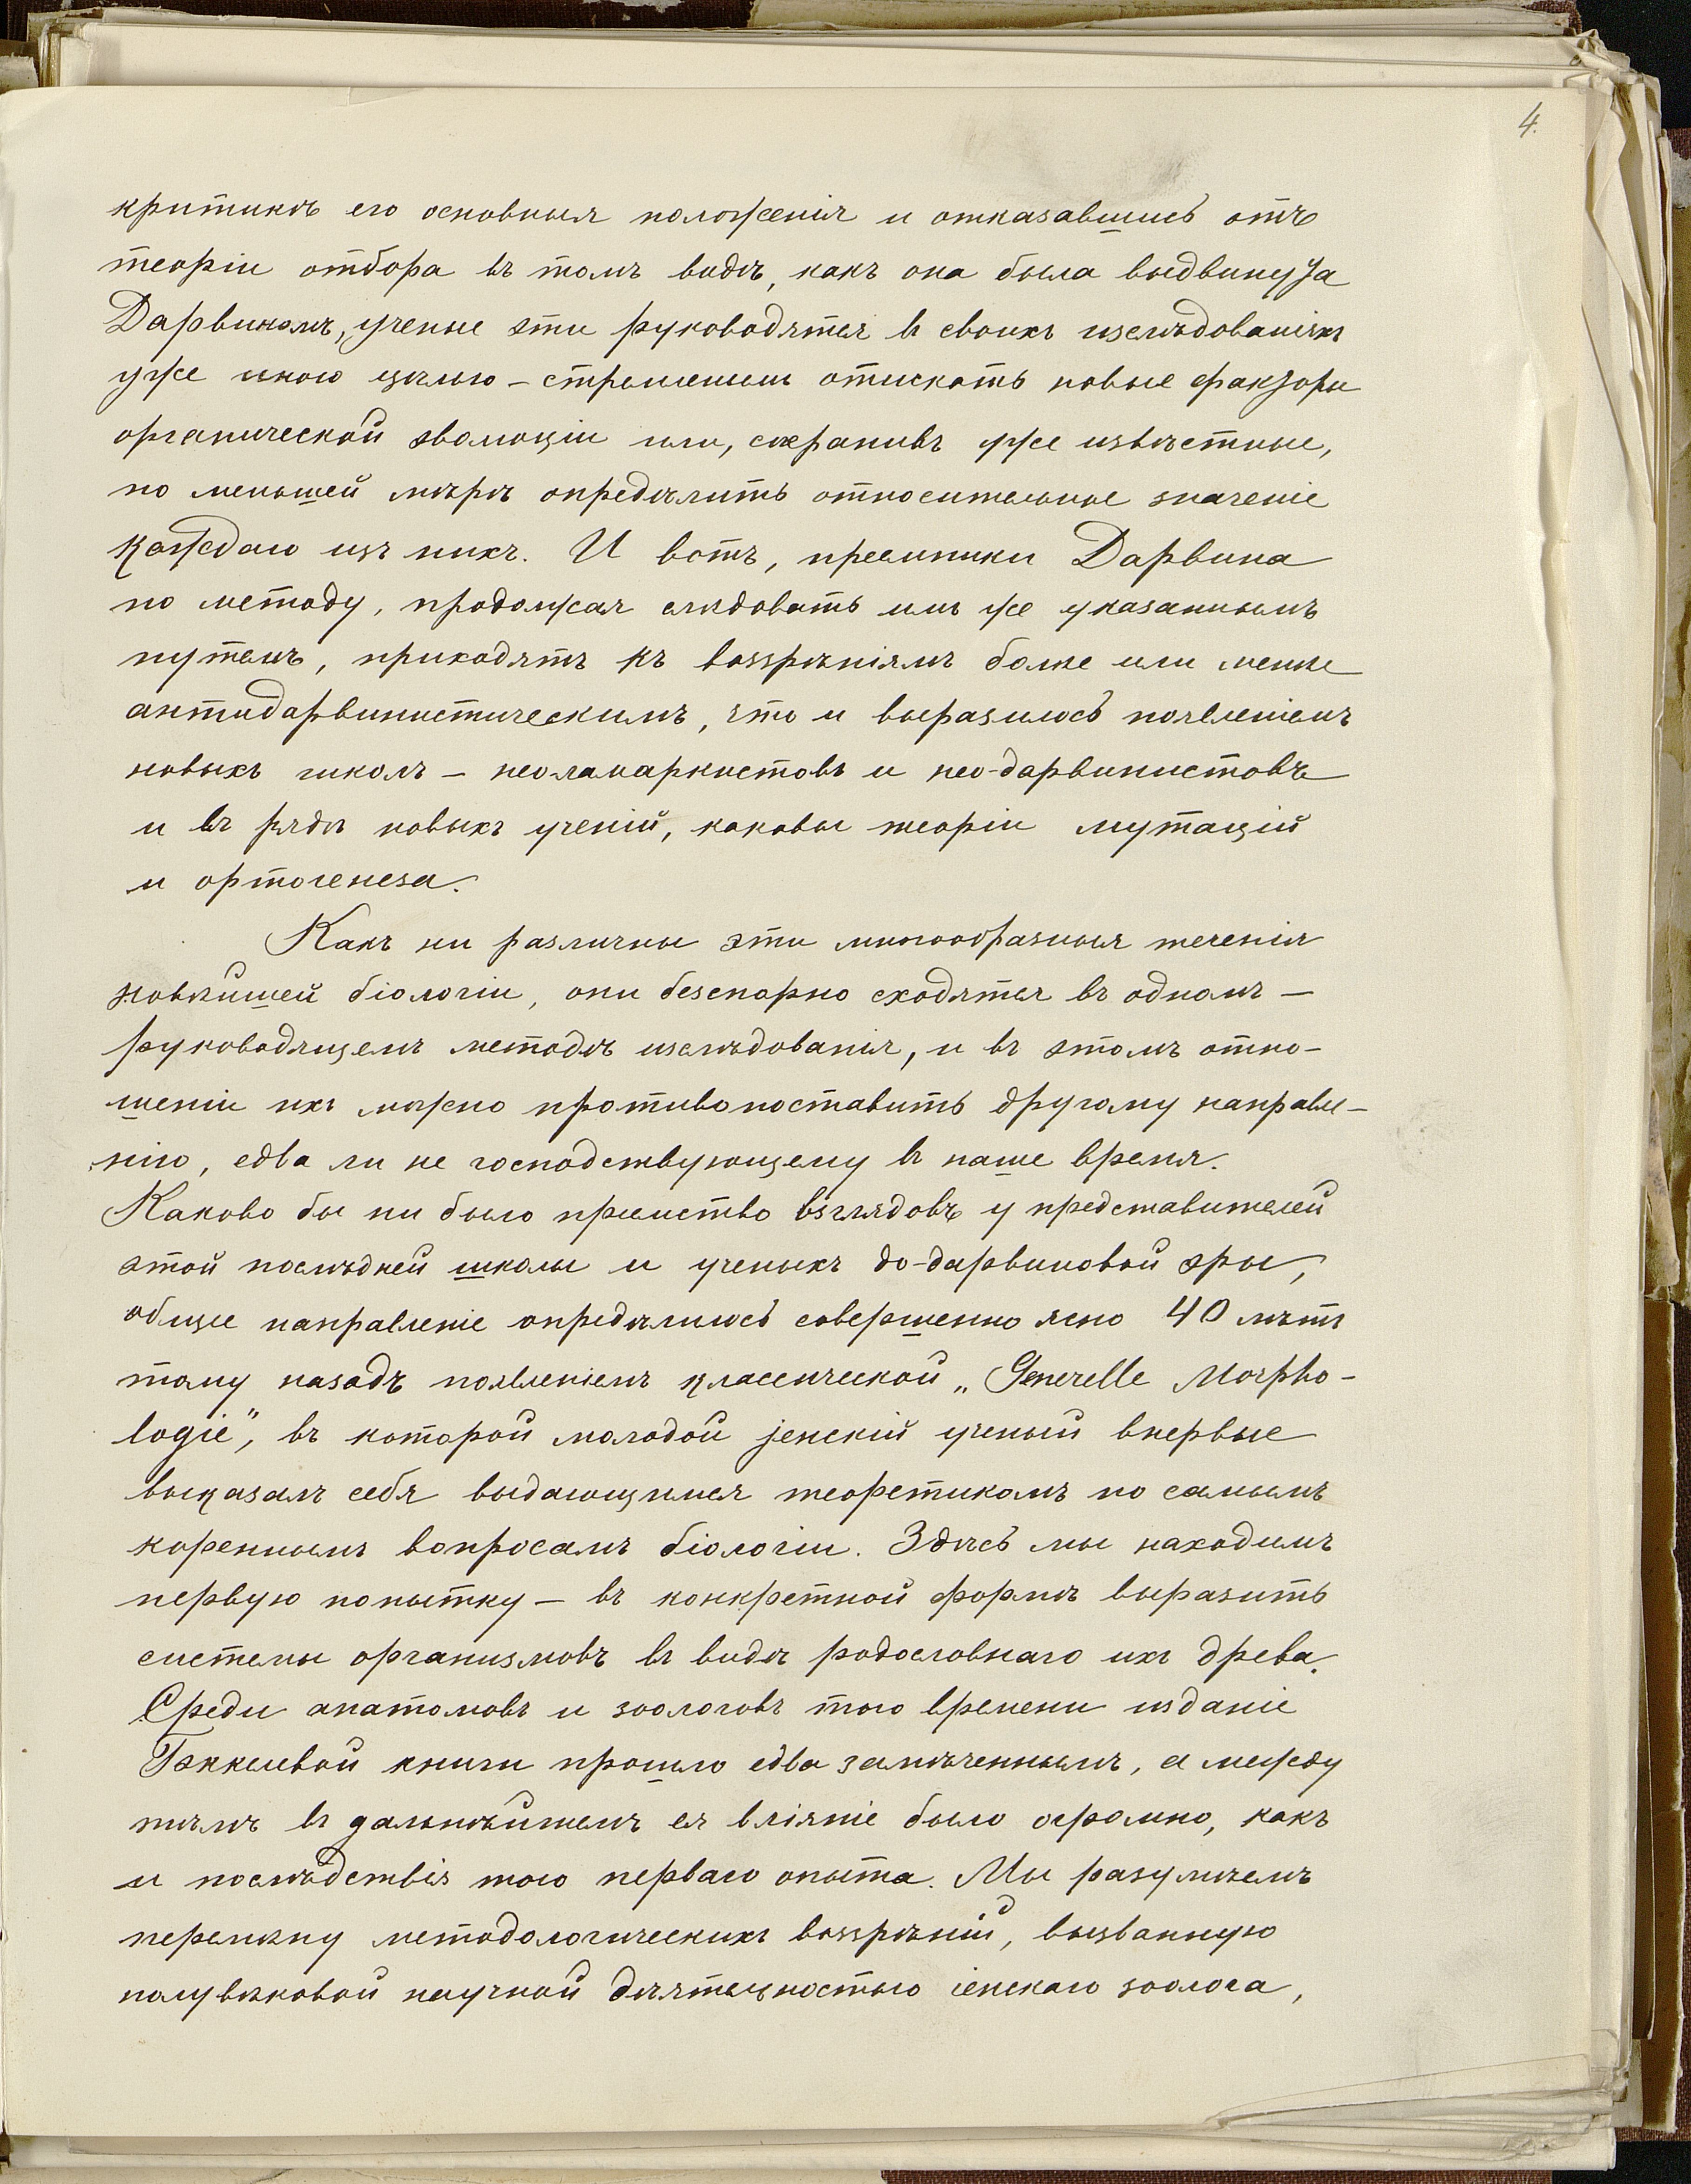 4.
критикѣ его основныя положенія и отказавшись отъ
теоріи отбора въ томъ видѣ, какъ она была выдвинута
Дарвиномъ, ученые эти руководятся въ своихъ изслѣдованіяхъ
уже иною цѣлью – стремленіемъ отыскать новые факторы
органической эволюціи или, сохранивъ уже извѣстные,
по меньшей мѣрѣ опредѣлить относительное значеніе
каждаго изъ нихъ. И вотъ, преемники Дарвина
по методу, продолжая слѣдовать имъ же указаннымъ
путемъ, приходятъ къ воззрѣніямъ болѣе или менѣе
антидарвинистическимъ, что и выразилось появленіемъ
новыхъ школъ – неоламаркистовъ и нео-дарвинистовъ
и въ рядѣ новыхъ ученій, каковы теоріи мутацій
и ортогенеза.
Какъ ни различны эти многообразныя теченія
новѣйшей біологіи, они безспорно сходятся въ одномъ –
руководящемъ методѣ изслѣдованія, и въ этомъ отно-
шеніи ихъ можно противопоставить другому направле-
нію, едва ли не господствующему въ наше время.
Каково бы ни было преемство взглядовъ у представителей
этой послѣдней школы и ученыхъ до-дарвиновой эры,
общее направленіе опредѣлилось совершенно ясно 40 лѣтъ
тому назадъ появленіемъ классической „Generelle Morpho-
logie“, въ которой молодой jенскій ученый впервые
выказалъ себя выдающимся теоретикомъ по самымъ
кореннымъ вопросамъ біологіи. Здѣсь мы находимъ
первую попытку – въ конкретной формѣ выразить
системы организмовъ въ видѣ родословнаго ихъ древа.
Среди анатомовъ и зоологовъ того времени изданіе
Гэккелевой книги прошло едва замѣченнымъ, а между
тѣмъ въ дальнѣйшемъ ея вліяніе было огромно, какъ
и послѣдствія того перваго опыта. Мы разумѣемъ
перемѣну методологическихъ воззрѣній, вызванную
полувѣковой научной дѣятельностью іенскаго зоолога,